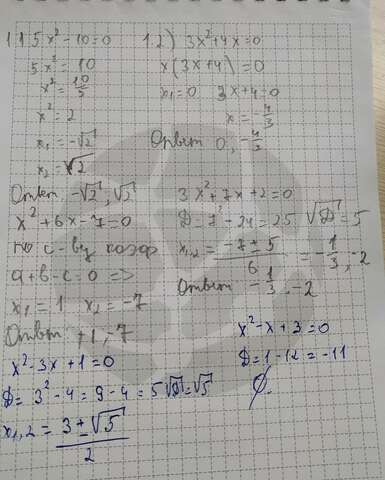 1.1 5x²-10=0
5x²=10
x²=10/5
x²=2
x₁=-√2
x₂=√2
Ответ, -√2, √2
1.2) 3x²+4x=0
x(3x+4)=0
x₁=0 3x+4=0
x=-4/3
Ответ 0, -4/3
x²+6x-7=0
по с-ву коэф
a+b-c=0 =>
x₁=1 x₂=-7
Ответ +1,-7
3x²+7x+2=0
D=7²-24=25 √D=5
x₁,₂=(-7±5)/6=-1/3,-2
Ответ -1/3.-2
x²-3x+1=0
D=3²-4=9-4=5 √D=√5
x₁,₂=(3±√5)/2
x²-x+3=0
D=1-12=-11
∅.